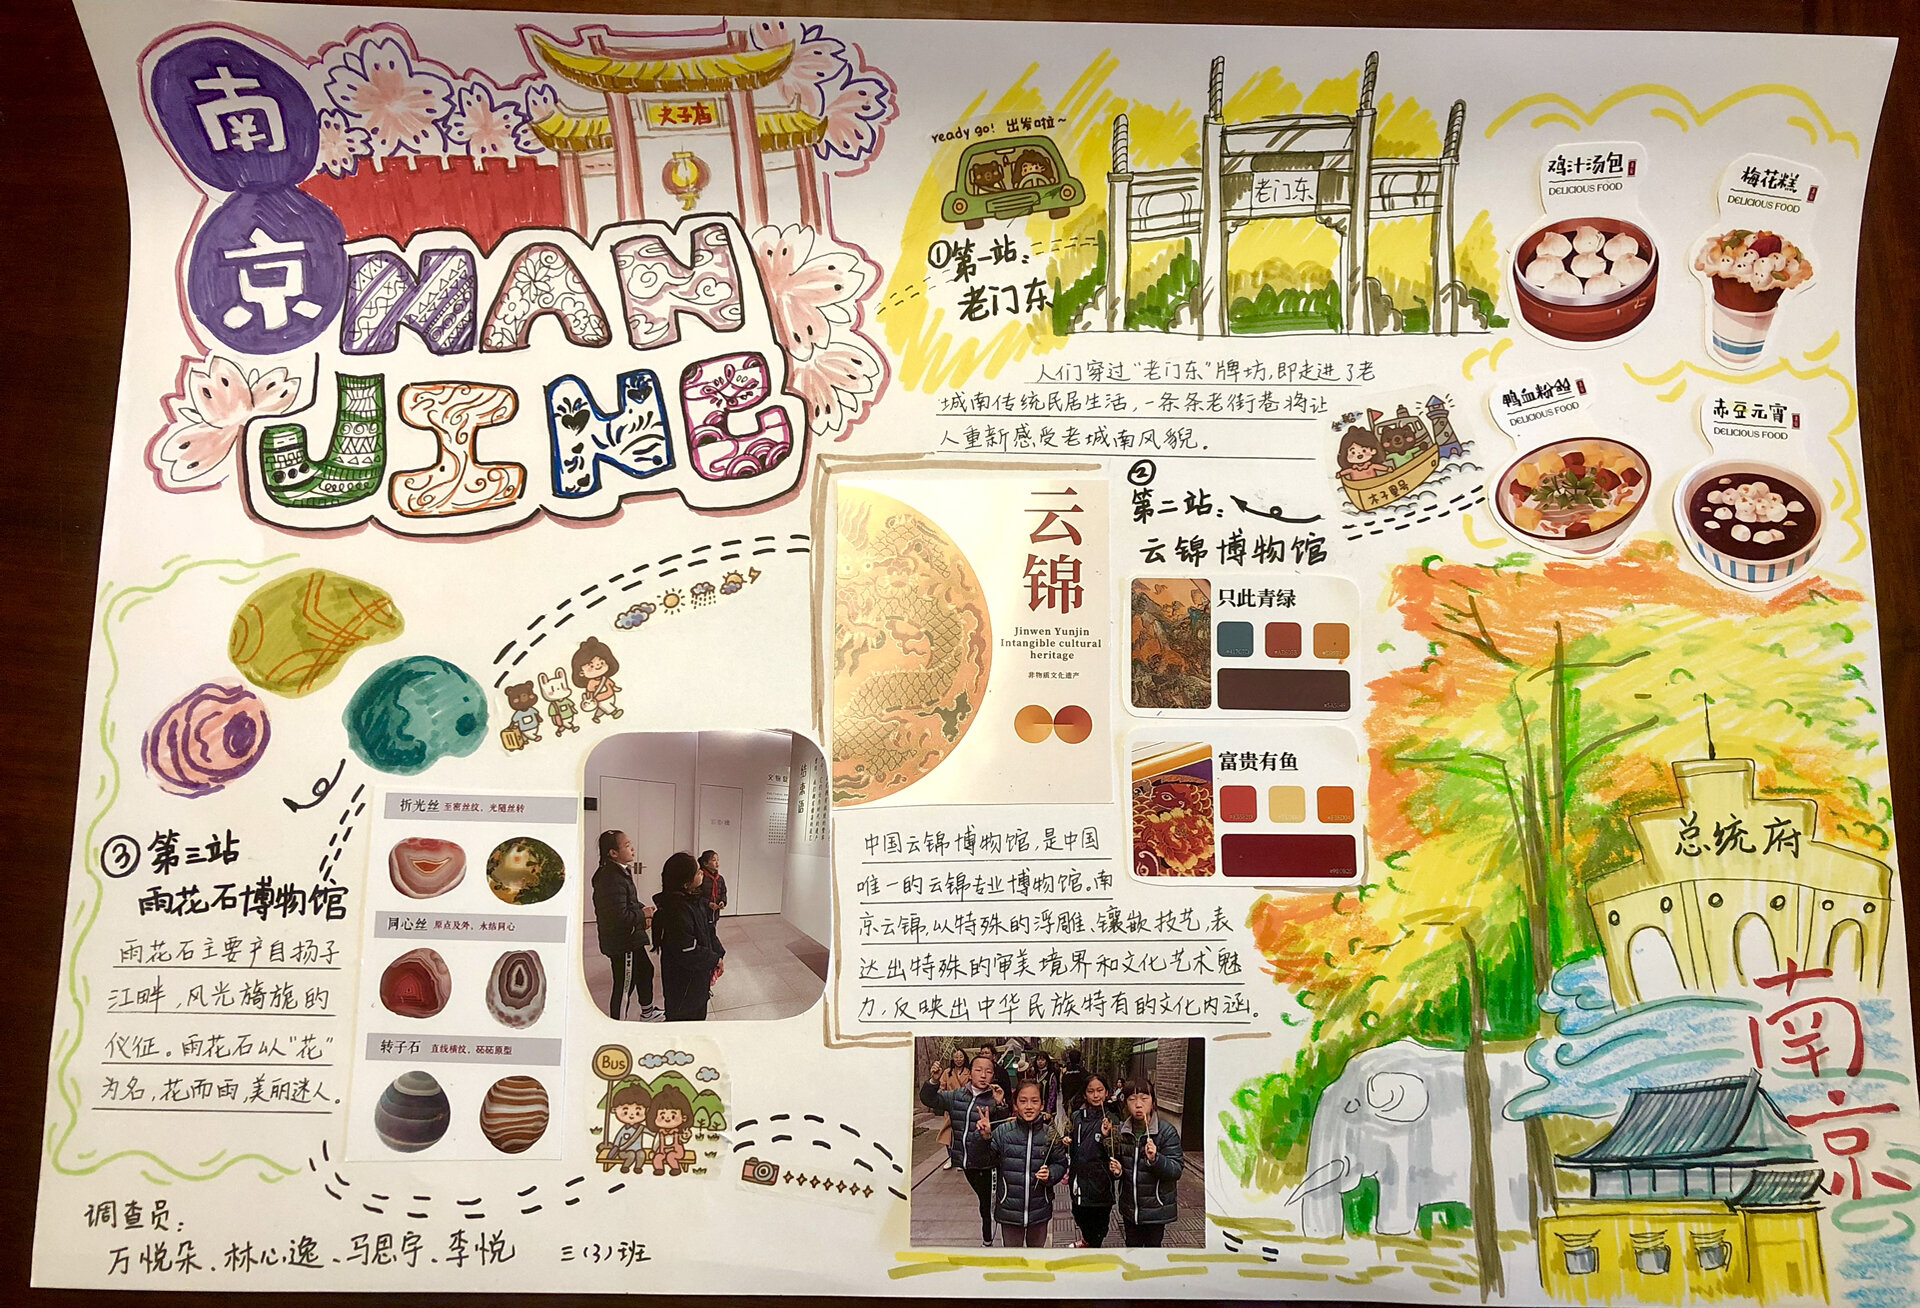 南
京
夫子庙
NAN
JING
ready go! 出发啦~
①第一站：
老门东
老门东
人们穿过“老门东”牌坊，即走进了老
城南传统民居生活，一条条老街巷将让
人重新感受老城南风貌。
鸡汁汤包
DELICIOUS FOOD
梅花糕
DELICIOUS FOOD
鸭血粉丝
DELICIOUS FOOD
赤豆元宵
DELICIOUS FOOD
②
第二站：
云锦博物馆
云
锦
Jinwen Yunjin
Intangible cultural
heritage
非物质文化遗产
只此青绿
富贵有鱼
中国云锦博物馆，是中国
唯一的云锦专业博物馆。南
京云锦，以特殊的浮雕、镶嵌技艺，表
达出特殊的审美境界和文化艺术魅
力，反映出中华民族特有的文化内涵。
③第三站
雨花石博物馆
雨花石主要产自扬子
江畔，风光旖旎的
仪征。雨花石以“花”
为名，花而雨，美丽迷人。
折光丝 至密丝纹、光随丝转
同心丝 原点及外、永结同心
转子石 直线横纹、砳砳原型
结束语
Bus
总统府
南
京
调查员：
万悦朵、林心逸、马思宇、李悦 三（3）班